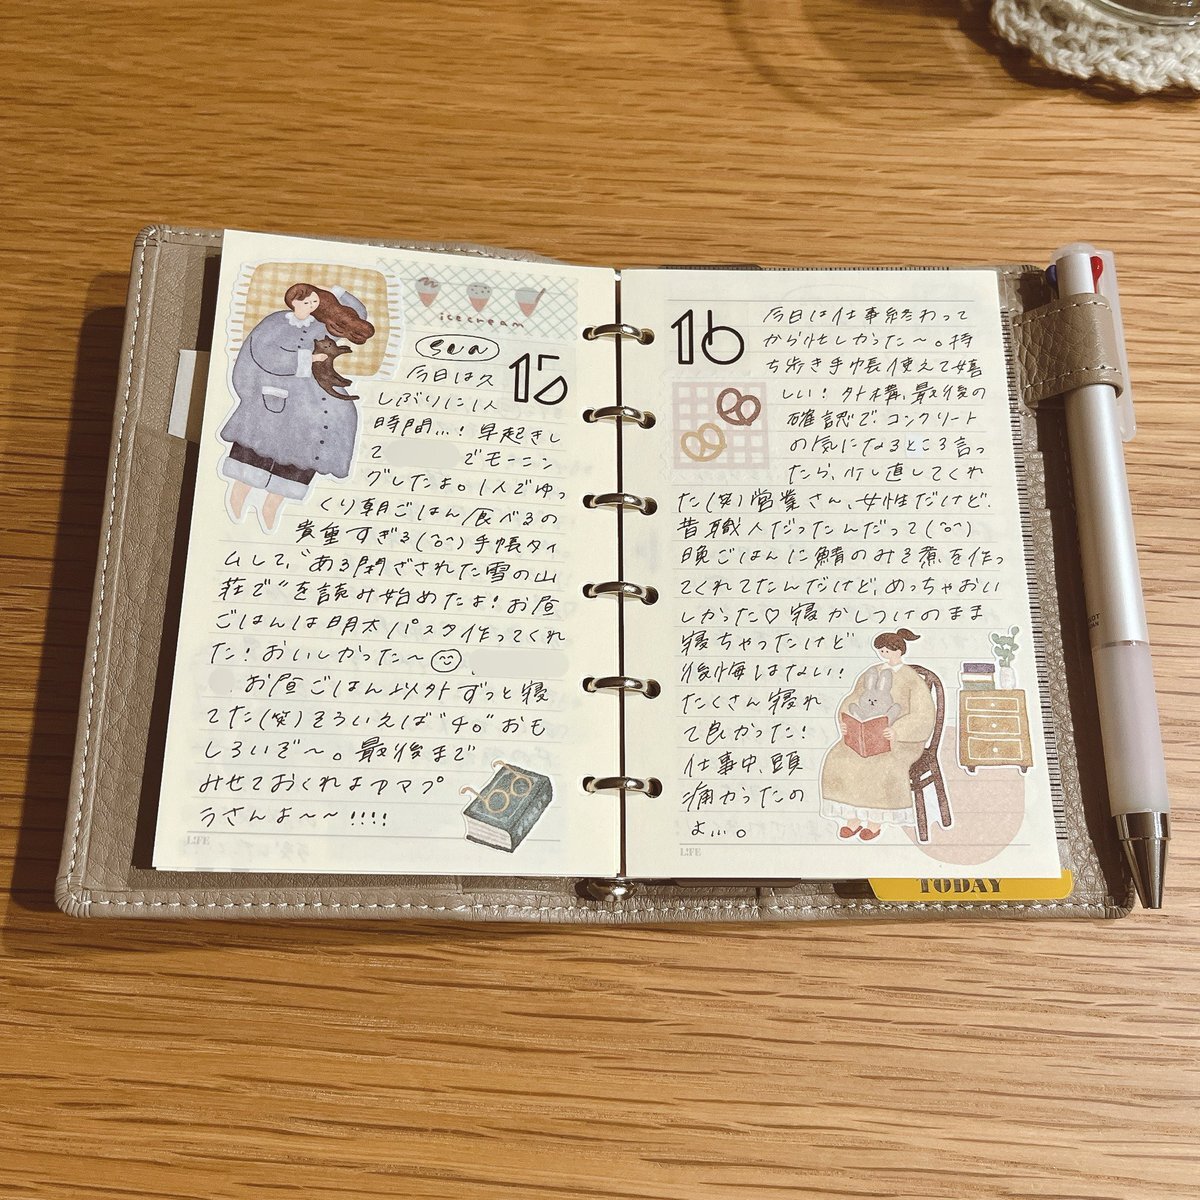 icecream
sun
15
今日は久
しぶりに1人
時間…！早起きし
て でモーニン
グしたよ。1人でゆっ
くり朝ごはん食べるの
貴重すぎる(^o^)手帳タイ
ムして、“ある閉ざされた雪の山
荘で”を読み始めたよ！お昼
ごはんは明太パスタ作ってくれ
た！おいしかった〜
お昼ごはん以外ずっと寝
てた(笑)そういえば“チ。”おも
しろいぞ〜。最後まで
みせておくれよアマプ
ラさんよ〜〜!!!!
L!FE
16
今日は仕事終わって
から忙しかった〜。持
ち歩き手帳使えて嬉
しい！外構、最後の
確認で、コンクリート
の気になるところ言っ
たら、少し直してくれ
た(笑)営業さん、女性だけど、
昔職人だったんだって(^o^)
晩ごはんに鯖のみそ煮を作っ
てくれてたんだけど、めっちゃおい
しかった♡寝かしつけのまま
寝ちゃったけど
後悔はない！
たくさん寝れ
て良かった！
仕事中、頭
痛かったの
よ…。
L!FE
TODAY